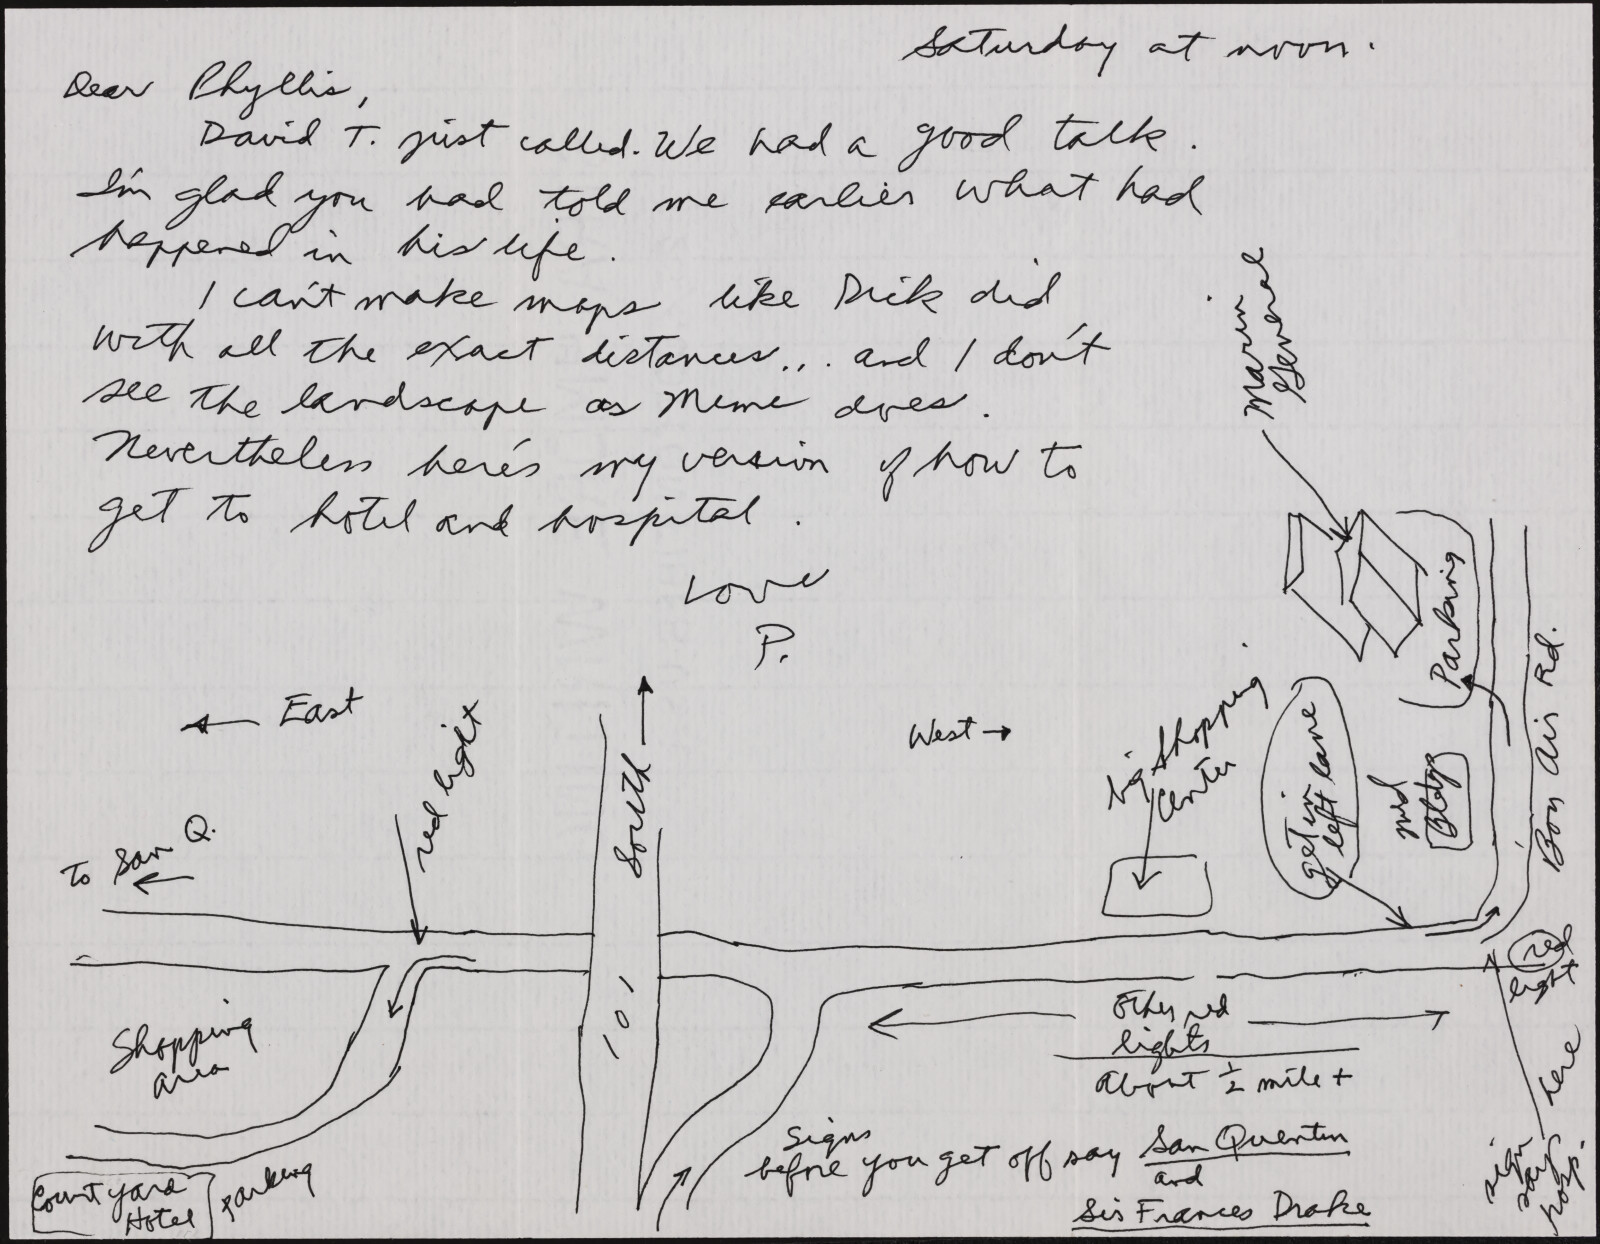 Saturday at noon.
Dear Phyllis,
David T. just called. We had a good talk.
I'm glad you had told me earlier what had
happened in his life.
I can't make maps like Dick did
with all the exact distances... and I don't
see the landscape as Meme does.
Nevertheless here's my version of how to
get to hotel and hospital.
Love
P.
Marin
General
Parking
Bon Air Rd.
← East
red light
South →
West →
big shopping
center
get in
left lane
med
Bldgs
To San Q.
←
red
light
101
Shopping
area
Other red
lights
About ½ mile +
sign
says
hosp.
here
Signs
before you get off say San Quentin
and
Sir Frances Drake
Courtyard
Hotel
parking